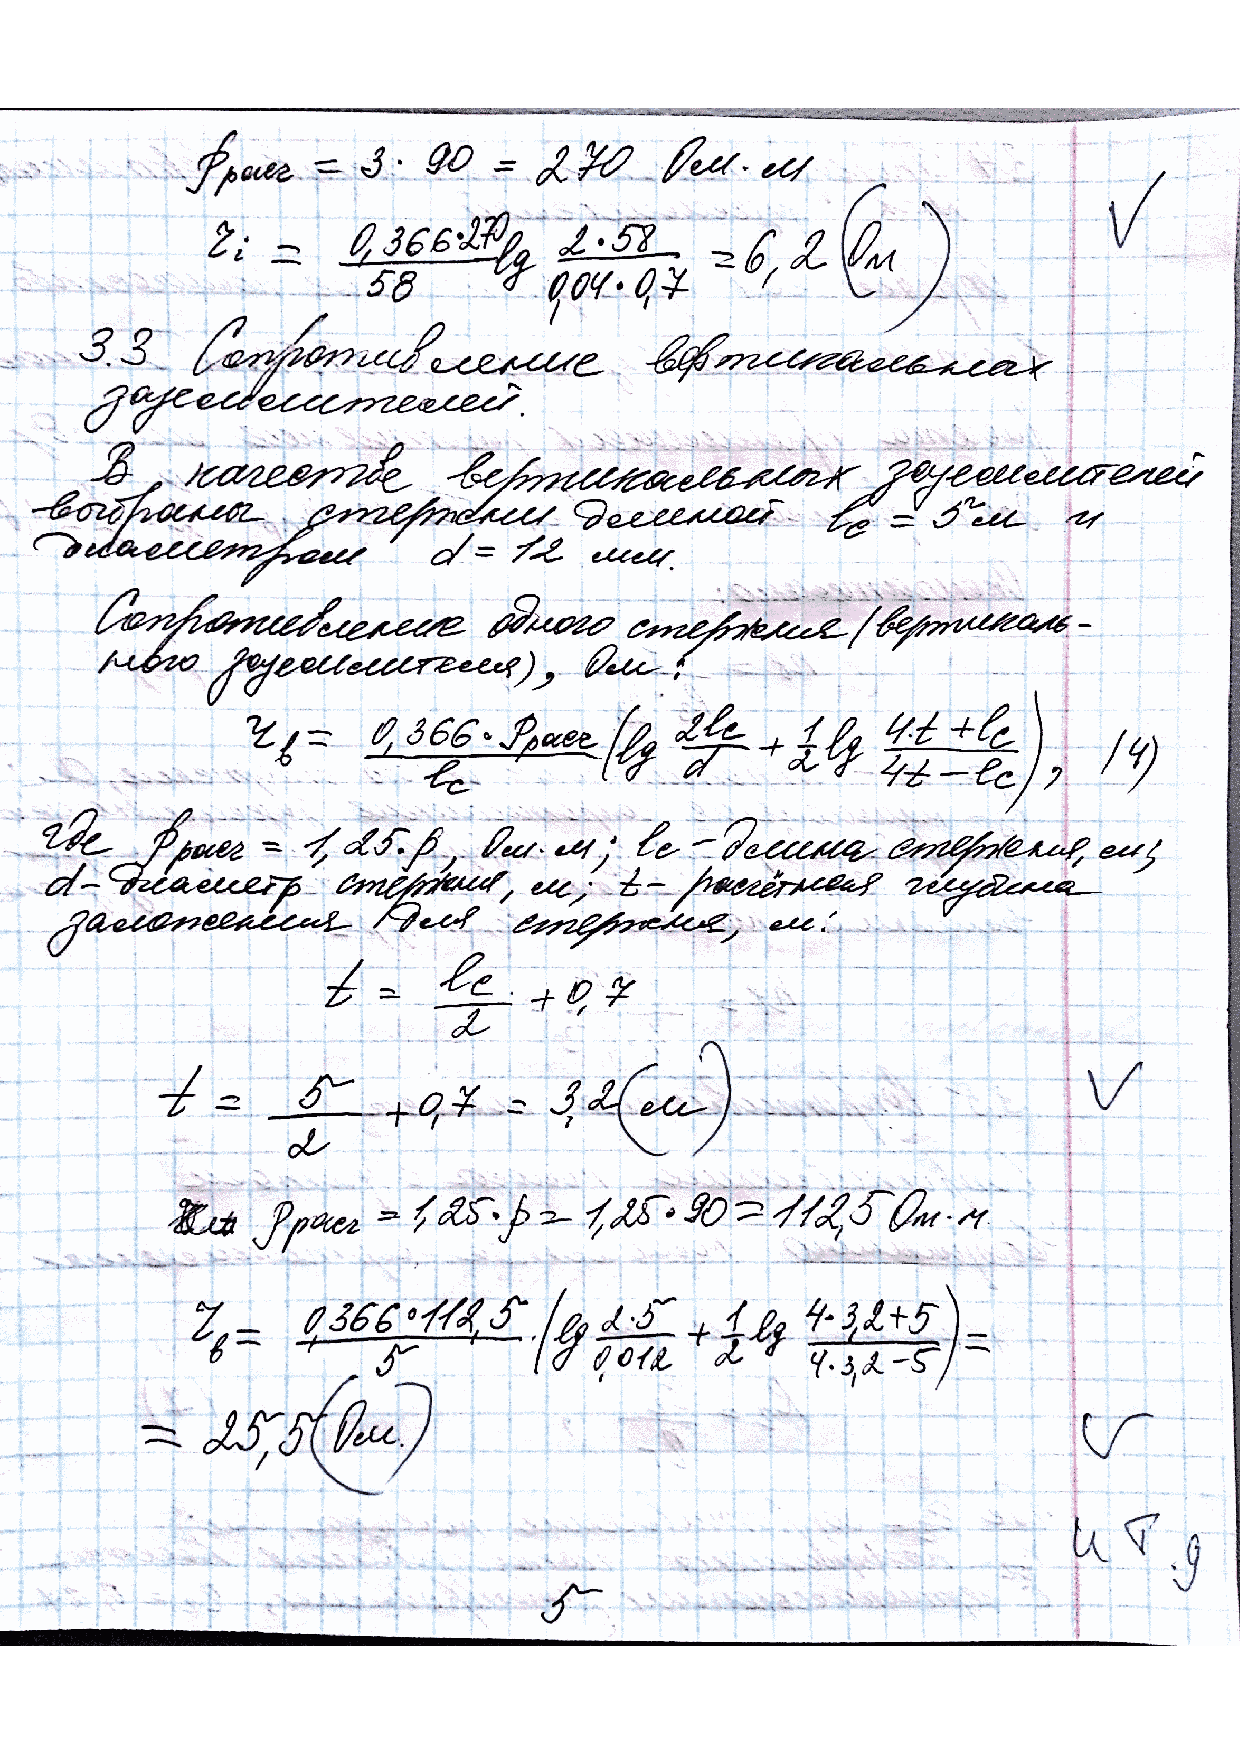 ρрасч = 3 · 90 = 270 Ом·м
✓
rᵢ = (0,366·270)/58 lg (2·58)/(0,04·0,7) = 6,2 (Ом)
3.3 Сопротивление вертикальных
заземлителей.
В качестве вертикальных заземлителей
выбраны стержни длиной lc = 5 м и
диаметром d = 12 мм.
Сопротивление одного стержня (вертикаль-
ного заземлителя), Ом:
rв = (0,366·ρрасч)/lc (lg 2lc/d + 1/2 lg (4·t+lc)/(4t-lc)), (4)
где ρрасч = 1,25·ρ, Ом·м; lc - длина стержня, м;
d - диаметр стержня, м; t - расчётная глубина
заложения для стержня, м:
t = lc/2 + 0,7
t = 5/2 + 0,7 = 3,2 (м)
✓
ρрасч = 1,25·ρ = 1,25·90 = 112,5 Ом·м
rв = (0,366·112,5)/5 · (lg (2·5)/0,012 + 1/2 lg (4·3,2+5)/(4·3,2-5)) =
= 25,5 (Ом.)
✓
и т.д
5